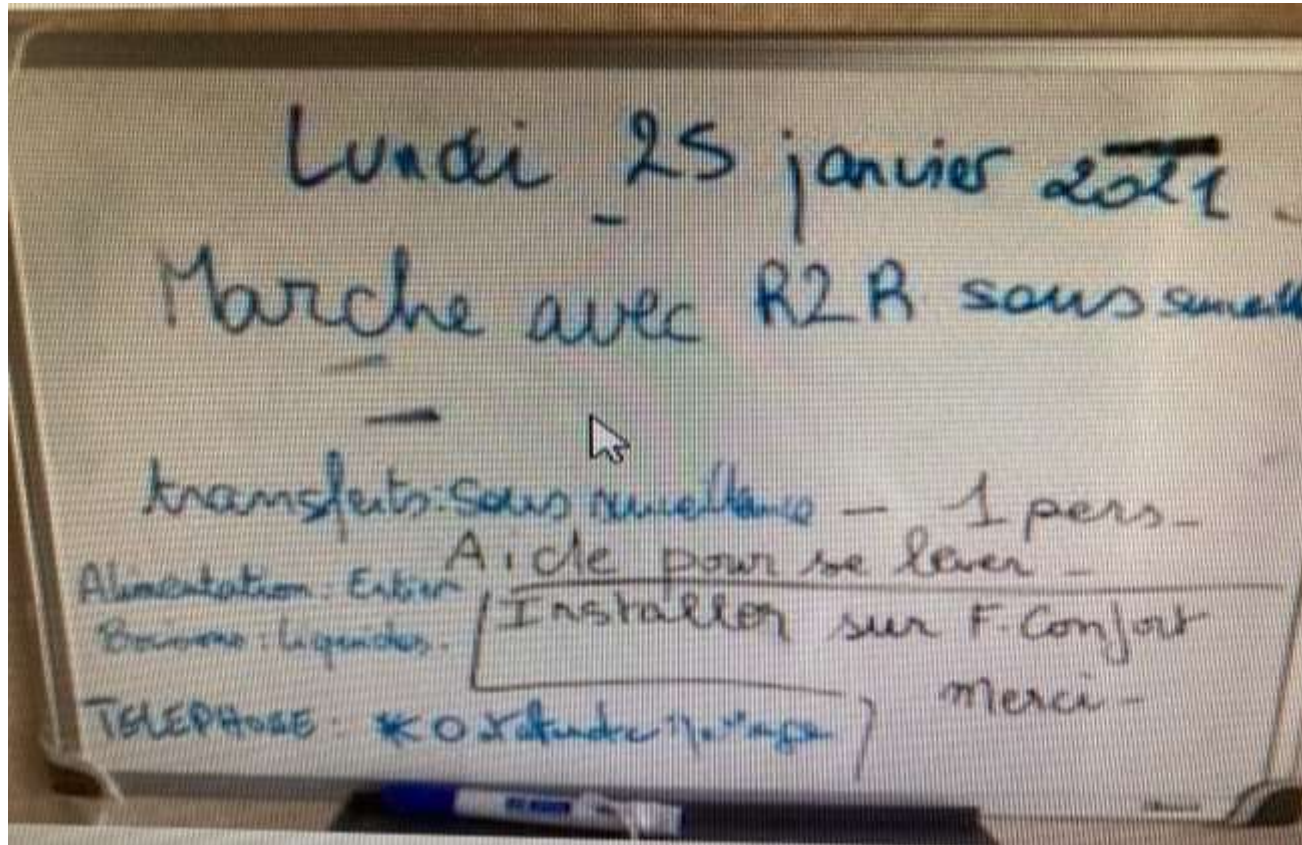 Lundi 25 janvier 2021 -
Marche avec R2R sous
transferts: Sous surveillance - 1 pers-
Aide pour se lever -
Alimentation: Entier
Boissons: liquides.
Installer sur F. Confort
merci -
TELEPHONE: *0